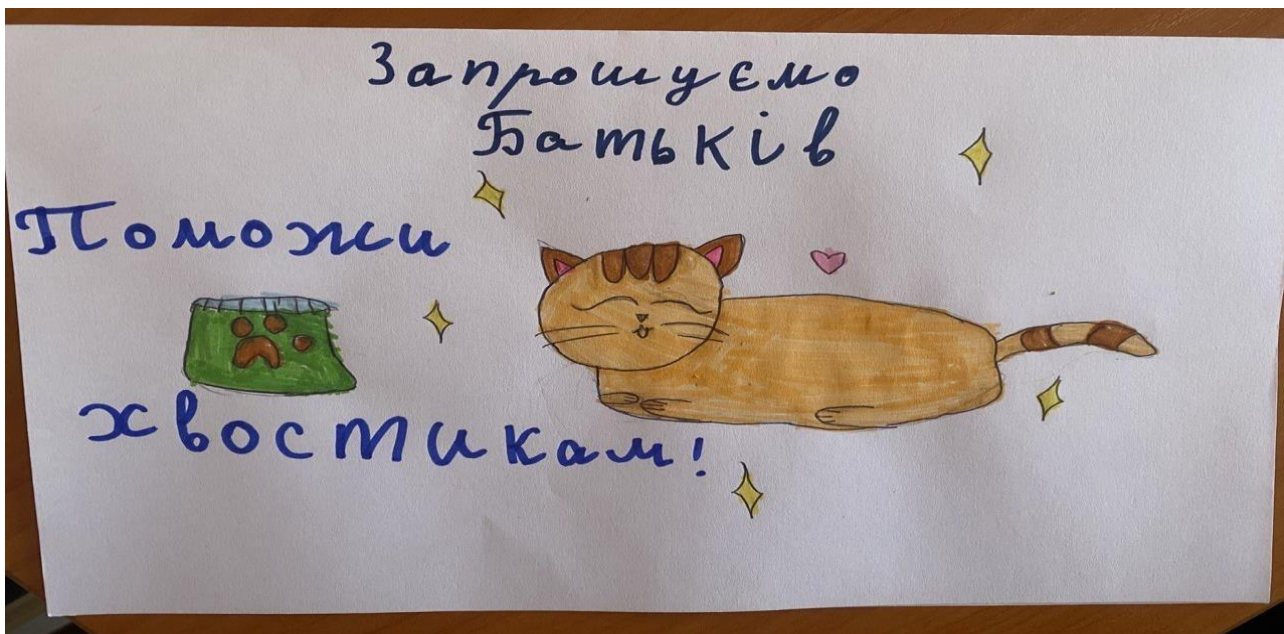 Запрошуємо
Батьків
Поможи
хвостикам!